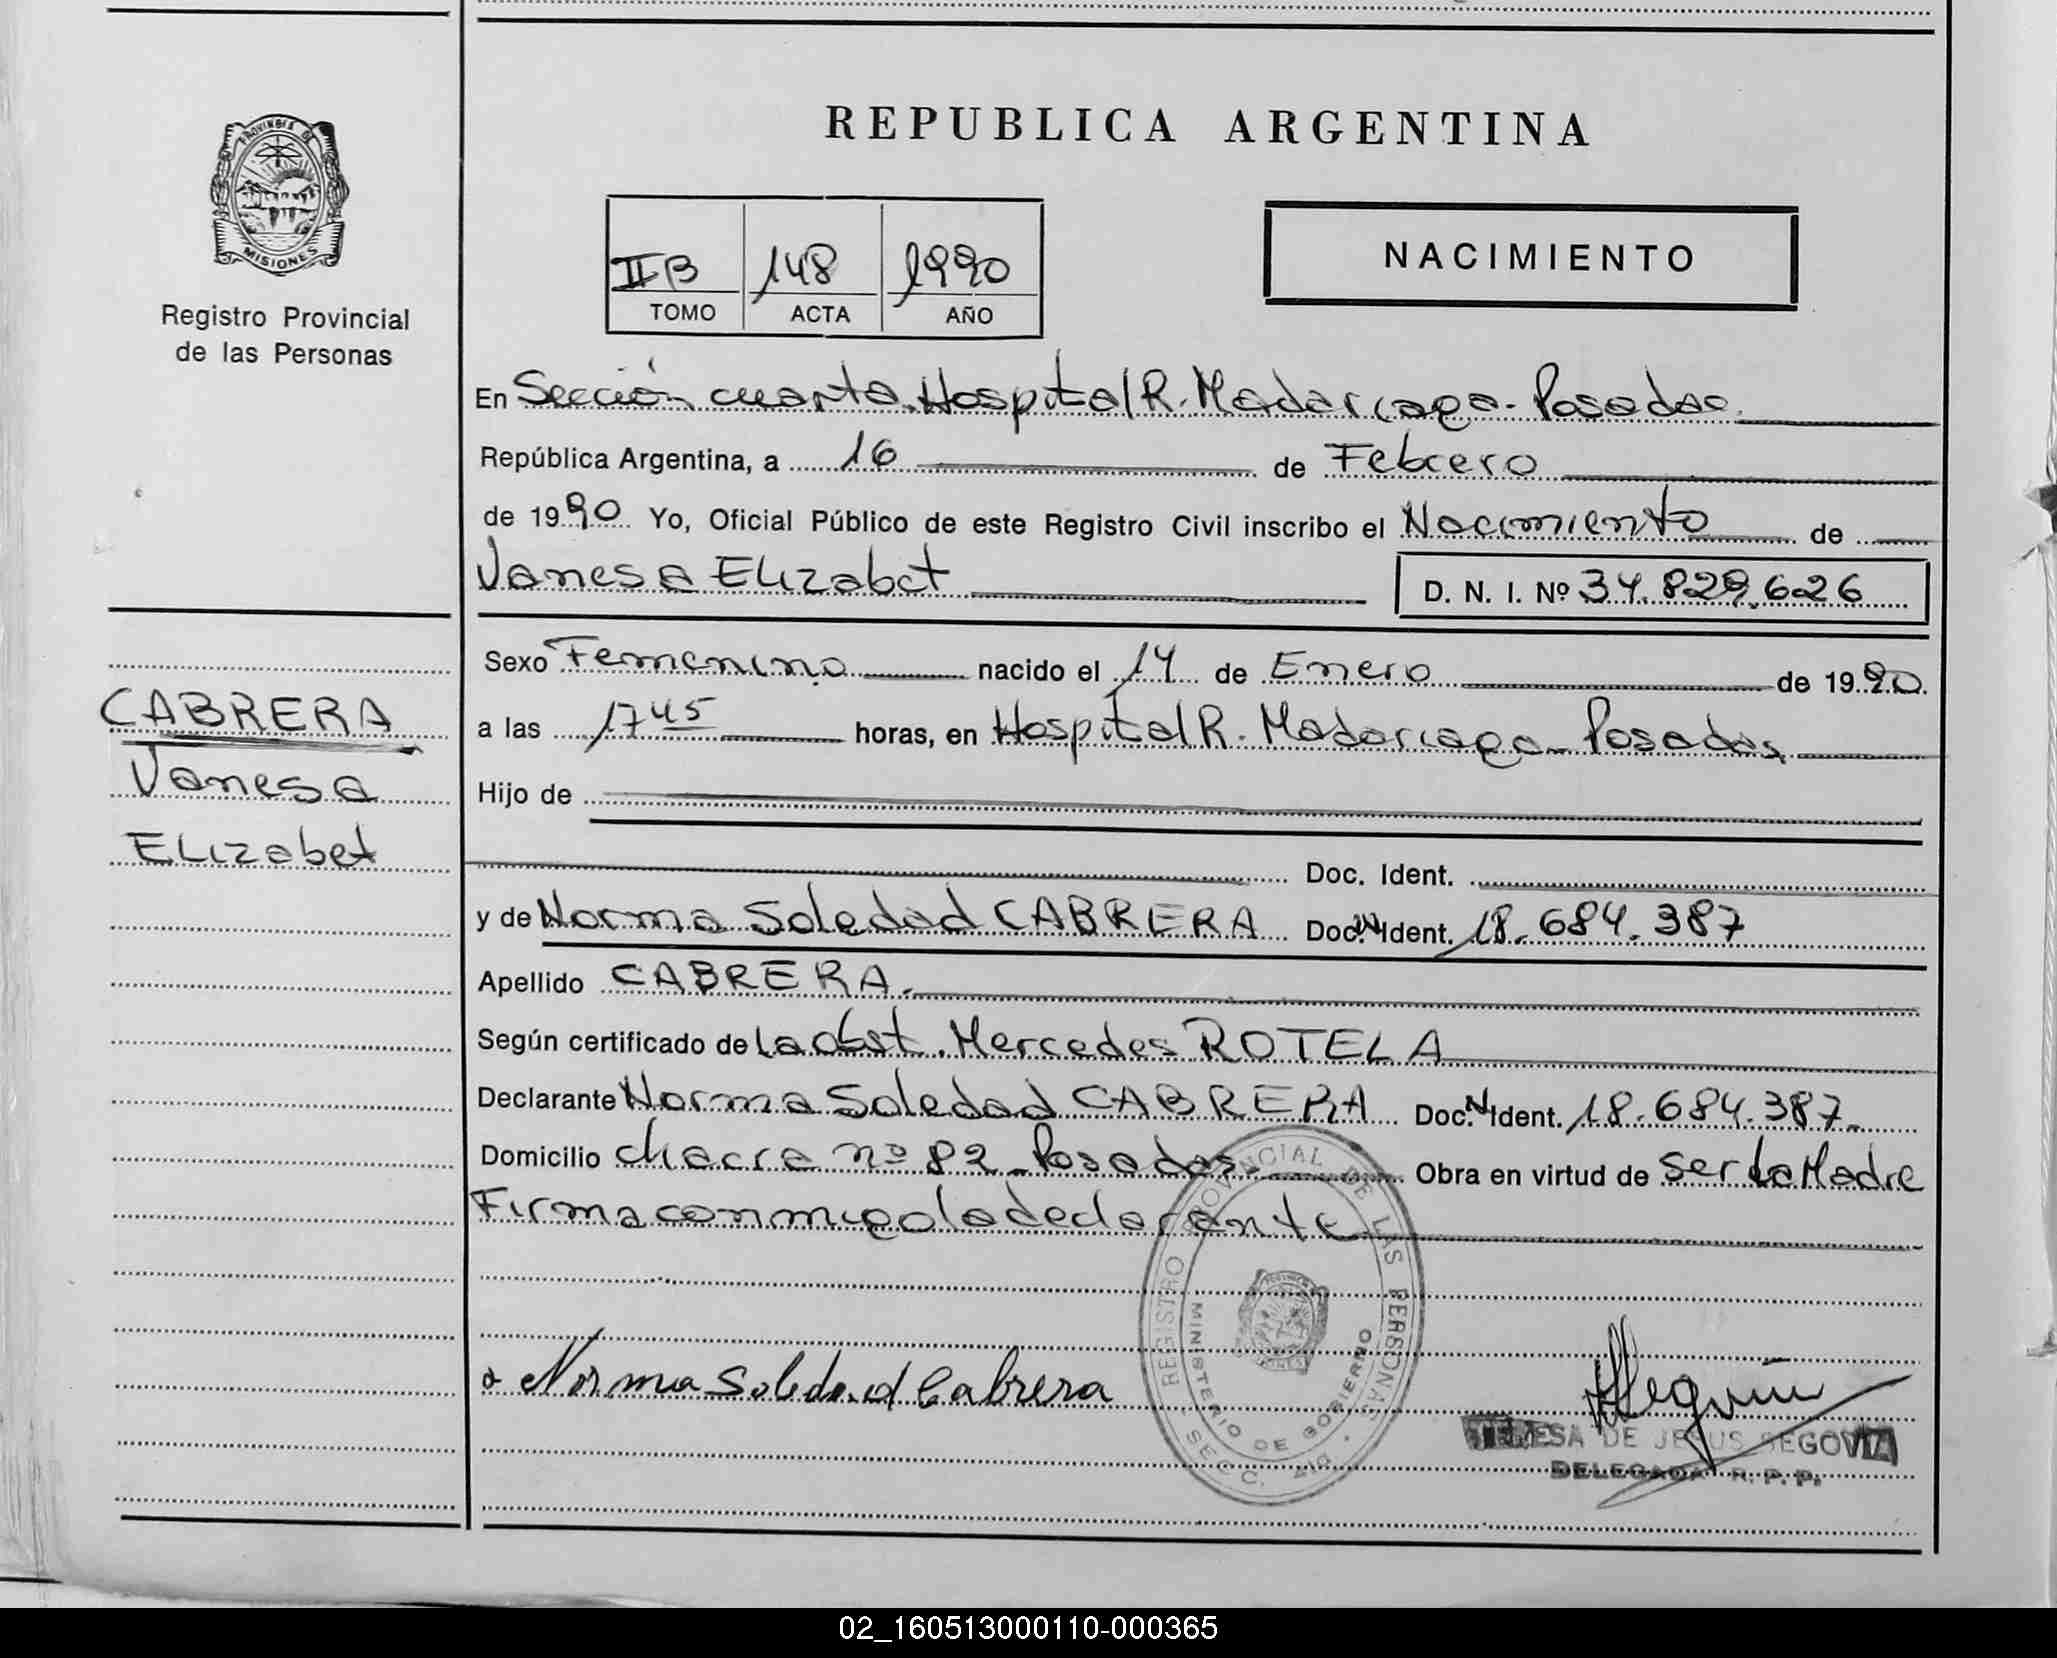 PROVINCIA DE
MISIONES
Registro Provincial
de las Personas
CABRERA
Vanesa
Elizabet
REPUBLICA ARGENTINA
II B 148 1990
TOMO ACTA AÑO
NACIMIENTO
En Sección cuarta. Hospital R. Madariaga - Posadas.
República Argentina, a 16 de Febrero
de 1990 Yo, Oficial Público de este Registro Civil inscribo el Nacimiento de
Vanesa Elizabet D. N. I. Nº 34.829.626
Sexo Femenino nacido el 14 de Enero de 1990.
a las 17 45 horas, en Hospital R. Madariaga - Posadas
Hijo de
Doc. Ident.
y de Norma Soledad CABRERA Doc. N Ident. 18.684.387
Apellido CABRERA.
Según certificado de La obst. Mercedes ROTELA
Declarante Norma Soledad CABRERA Doc. N Ident. 18.684.387.
Domicilio chacra nº 82 - Posadas. Obra en virtud de ser La Madre
Firma conmigo la declarante
Norma Soledad Cabrera
REGISTRO PROVINCIAL DE LAS PERSONAS
MINISTERIO DE GOBIERNO
SECC. 4ta.
TERESA DE JESUS SEGOVIA
DELEGADA R. P. P.
02_160513000110-000365